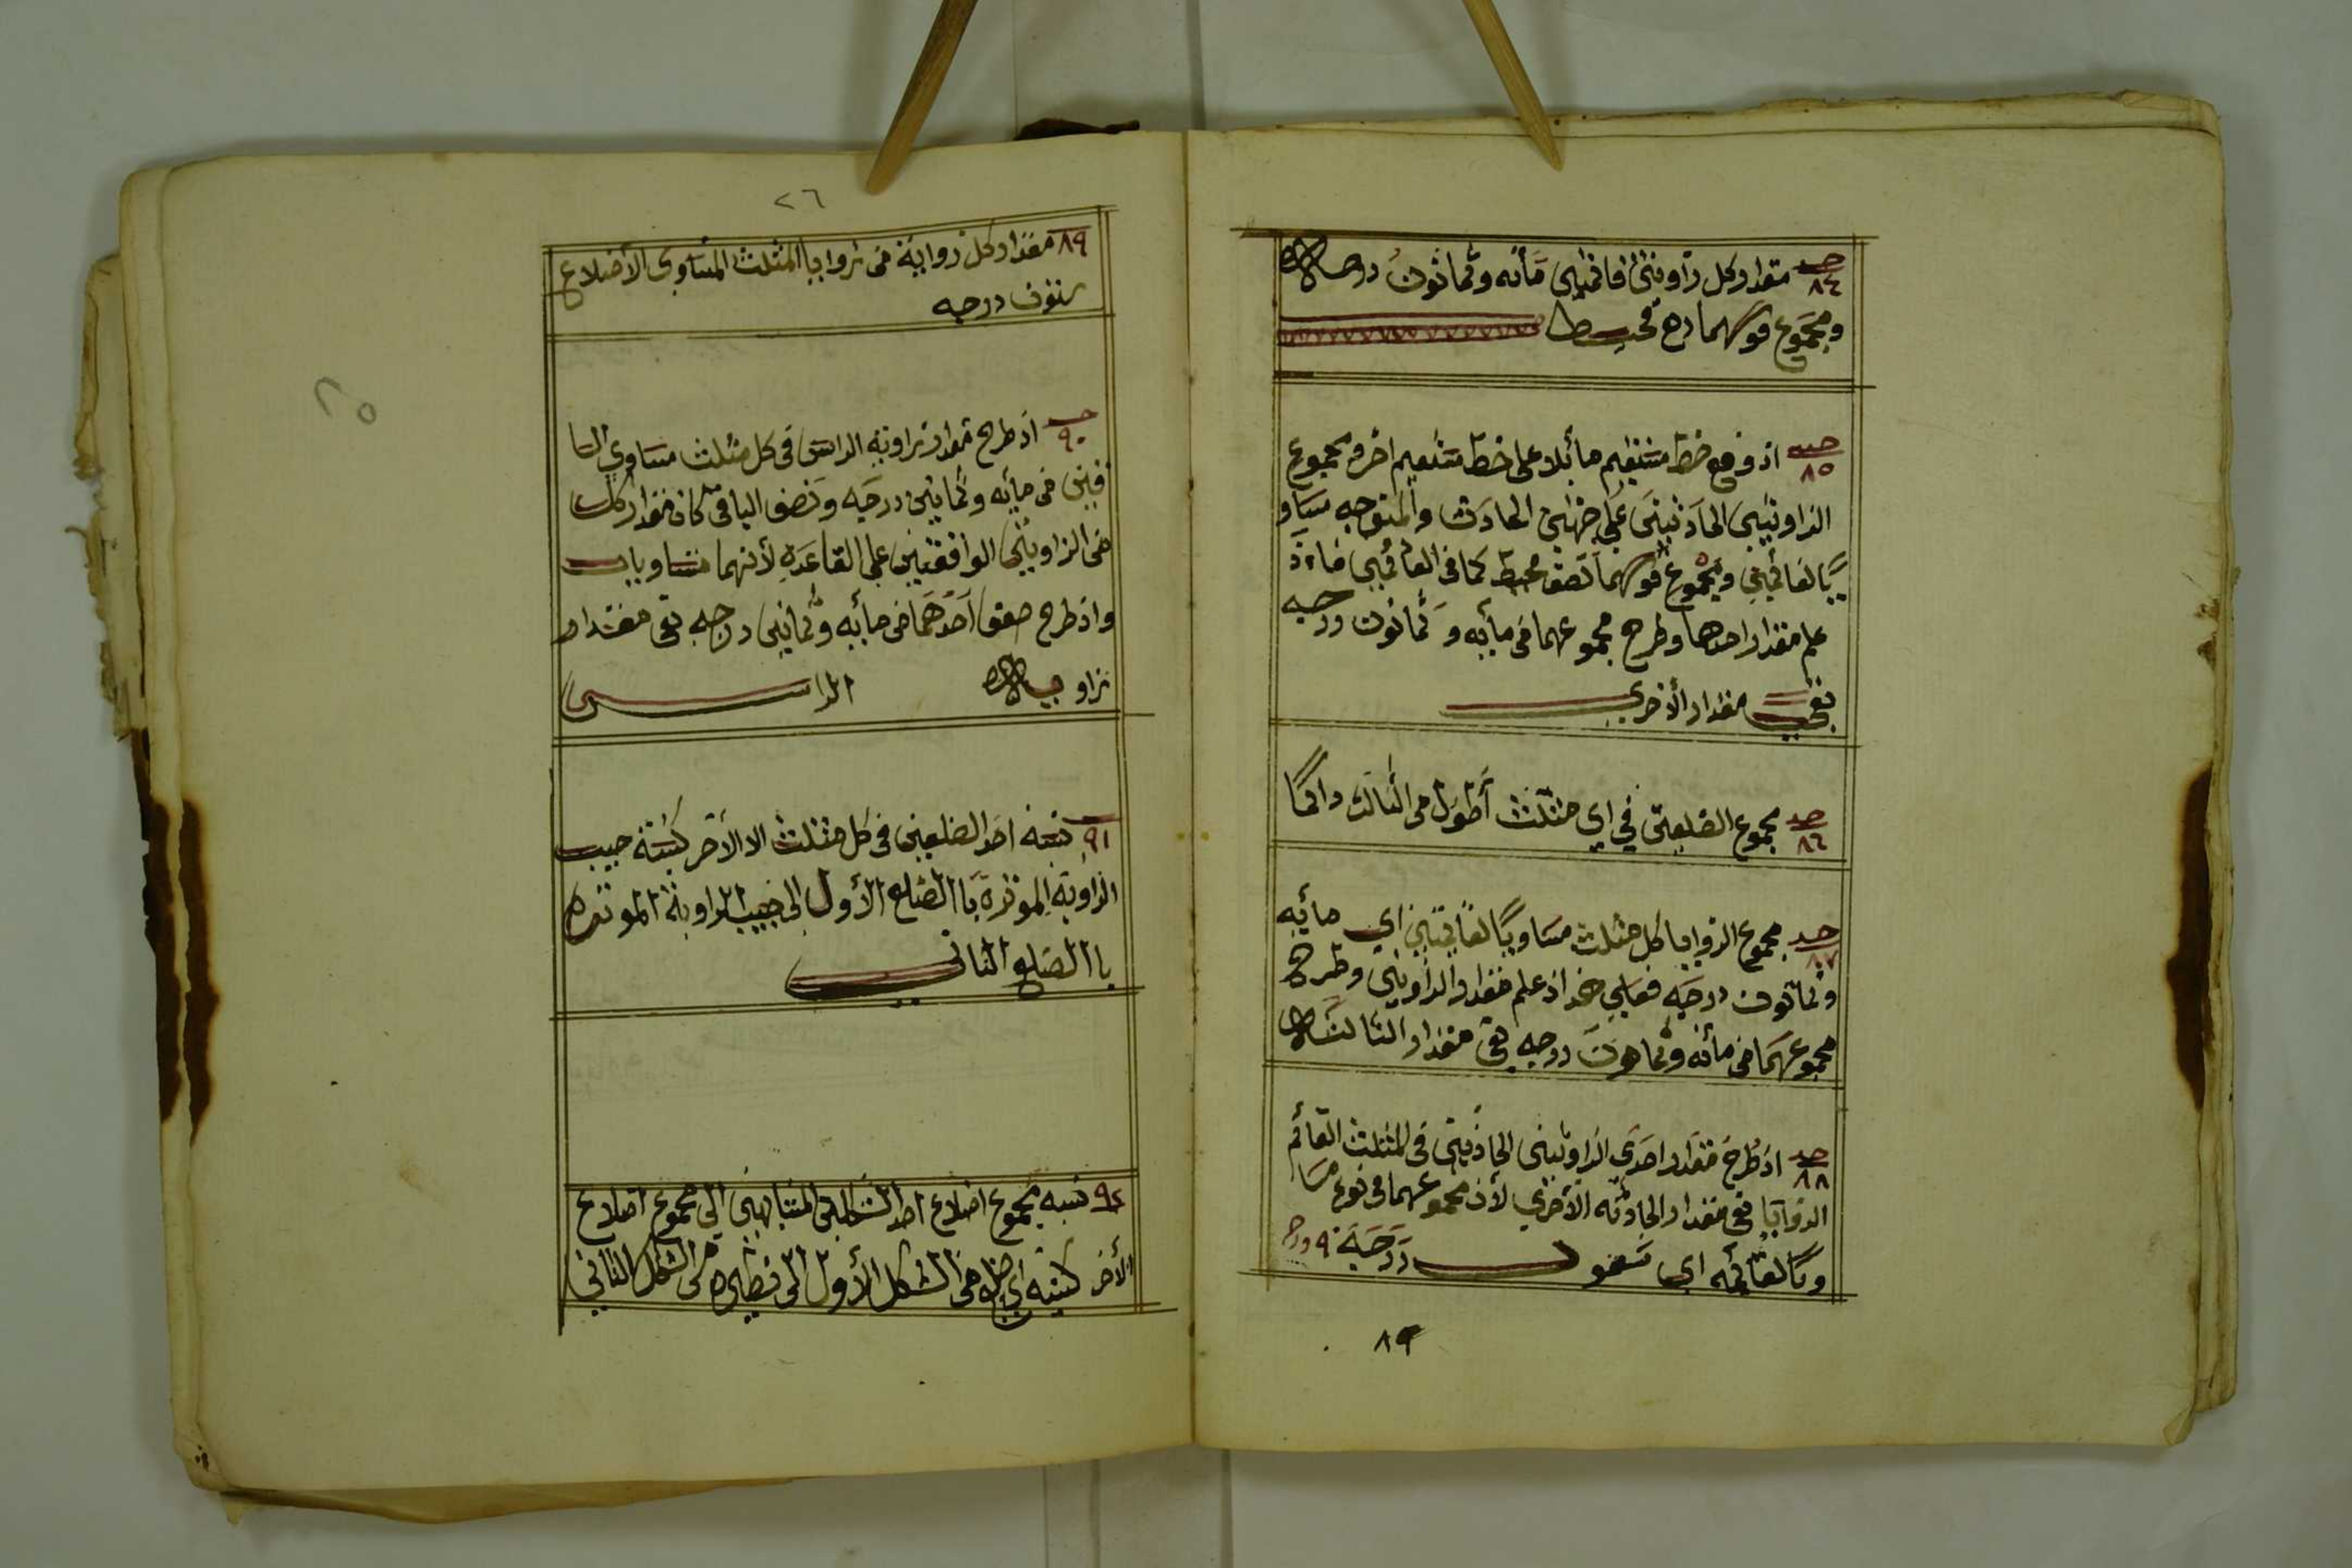 حد ٨٤ مقدار كل زاويتي قائمتين مأته وثمانون درجه
ومجموع قوسهما ده محيط
حد ٨٥ اذ وقع خط مستقيم مائلا على خط مستقيم اخر ومجموع
الزاويتين الحادثتين على جهتين الحادث والمتوجه مساو
يًا لقائمتين ومجموع قوسهما نصف محيط كما في القائمتين فاءذ
علم مقدار احدها وطرح مجموعهما من مأيه وثمانون درجه
بقي مقدار الأخرى
حد ٨٦ مجموع الضلعين في اي مثلث أطول من الثالث دائمًا
حد ٨٧ مجموع الزوايا كل مثلث مساويًا لقائمتين اي مائيه
وثمانون درجه فعلى هذا اذ علم مقدار الزاويتين وطرح
مجموعهما من مأنه وثمانون درجه بقي مقدار الثالثة
حد ٨٨ اذ طرح مقدار احدى الزاويتين الحادتين في المثلث القائم
الزوايا بقي مقدار الحادثه الأخرى لأن مجموعهما في نوع مسا
ويًا لقائمه اي تسعون درجة ٩ درج
٨٩
٢٦
٨٩ مقدار كل زواية من زوايا المثلث المتساوي الأضلاع
ستون درجه
٢٥
حد ٩٠ اذ طرح مقدار زاويه الراس في كل مثلث مساوي السا
قين من مايه وثمانين درجه ونصف الباقي كان مقدار كل
من الزاويتين الواقفتين على القاعده لأنهما متساويان
واذ طرح ضعف احدهما من مائه وثمانين درجه بقي مقدار
زاوية الراس
٩١ نسبة احد الضلعين في كل مثلث الا الأخر كنسبة جيب
الزاويه الموتره با الضلع الأول الى جيب الزاوية الموتره
با الضلع الثاني
٩٢ نسبه مجموع اضلاع احد الشكلين المتشابهين الى مجموع اضلاع
الأخر كنسبه اي ضلع من الشكل الأول الى نظيره من الشكل الثاني